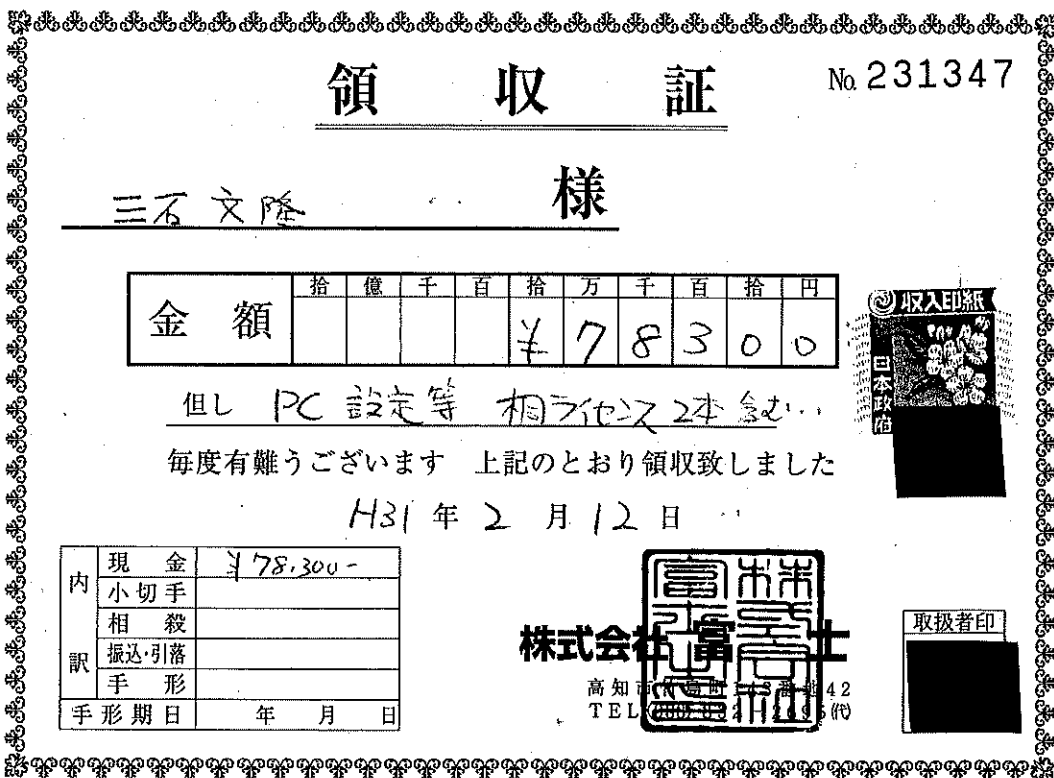 領収証
No. 231347
三石文隆 様
金額
拾 億 千 百 拾 万 千 百 拾 円
¥ 7 8 3 0 0
収入印紙
日本政府
但し PC設定等 桐ライセンス2本含む・・
毎度有難うございます 上記のとおり領収致しました
H31年2月12日
内訳
現金 ¥78,300-
小切手
相殺
振込・引落
手形
手形期日 年 月 日
株式会社富士
高知市
TEL
取扱者印